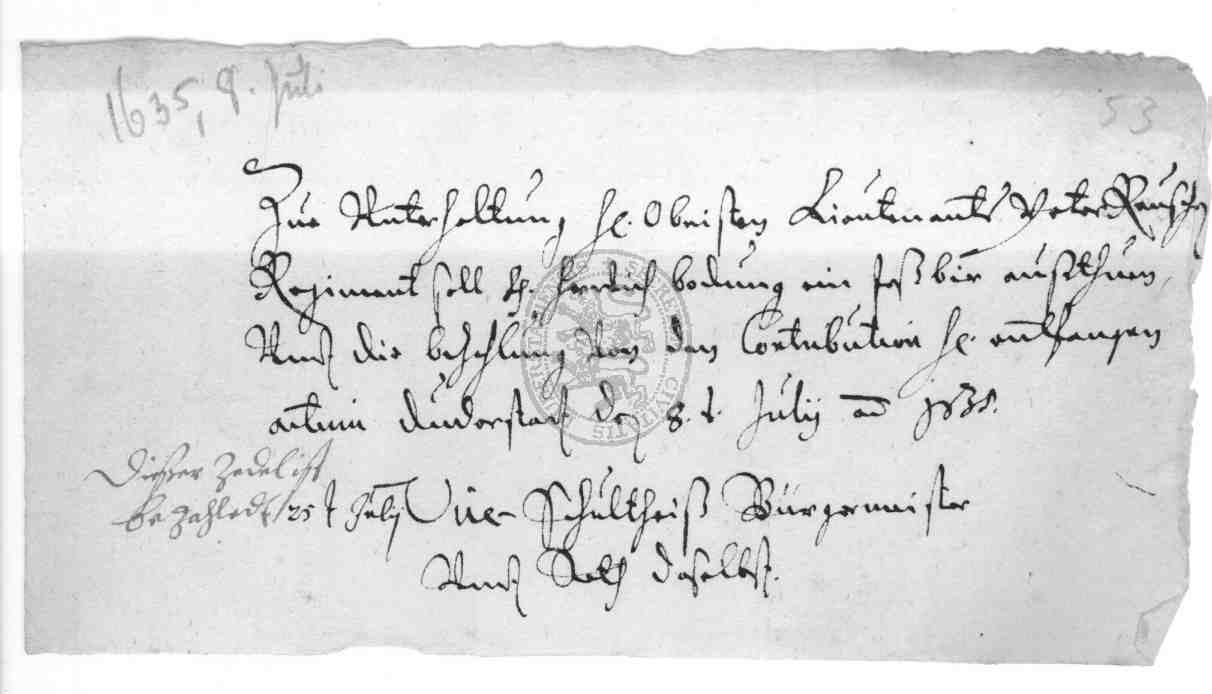 1635, 8. Juli
53
Zue Unterhaltung H. Obristen Lieutenants Peter
Regiment soll H. Henrich bodung ein faß bir außthuen,
Undt die bezahlung von den Contribution H. entfangen
actum Duderstadt den 8. t. Julij ao 1635.
Dießer Zedel ist
bezahledt 25 t July
Vice Schultheiß Bürgermeister
Undt Rath daselbst.